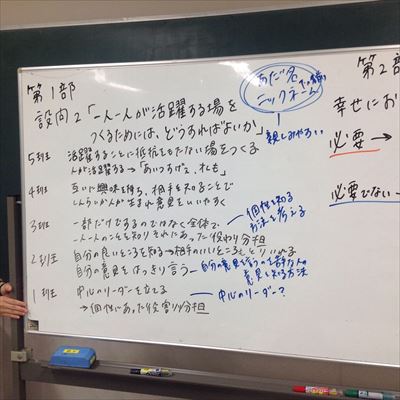 第1部
設問2「一人一人が活躍する場を
つくるためには、どうすればよいか」
あだ名
ニックネーム
親しみやすい
5班 活躍することに抵抗をもたない場をつくる
人が活躍する→「あいつすげぇ、オレも」
4班 互いに興味を持ち、相手を知ることで
しんらいかんが生まれ意見もいいやすく
3班 一部だけでするのではなく全体で
一人一人のこせいを知りそれにあった役わり分担
個性を知る
方法を考える
2班 自分の良いところを知る→相手のいいところもとりいれる
自分の意見をはっきり言う
自分の意見を言うのが苦手な人の
意見を知る方法
1班 中心のリーダーを立てる
中心のリーダー?
→個性にあった役割り分担
第2部
幸せにお
必要→
必要でない